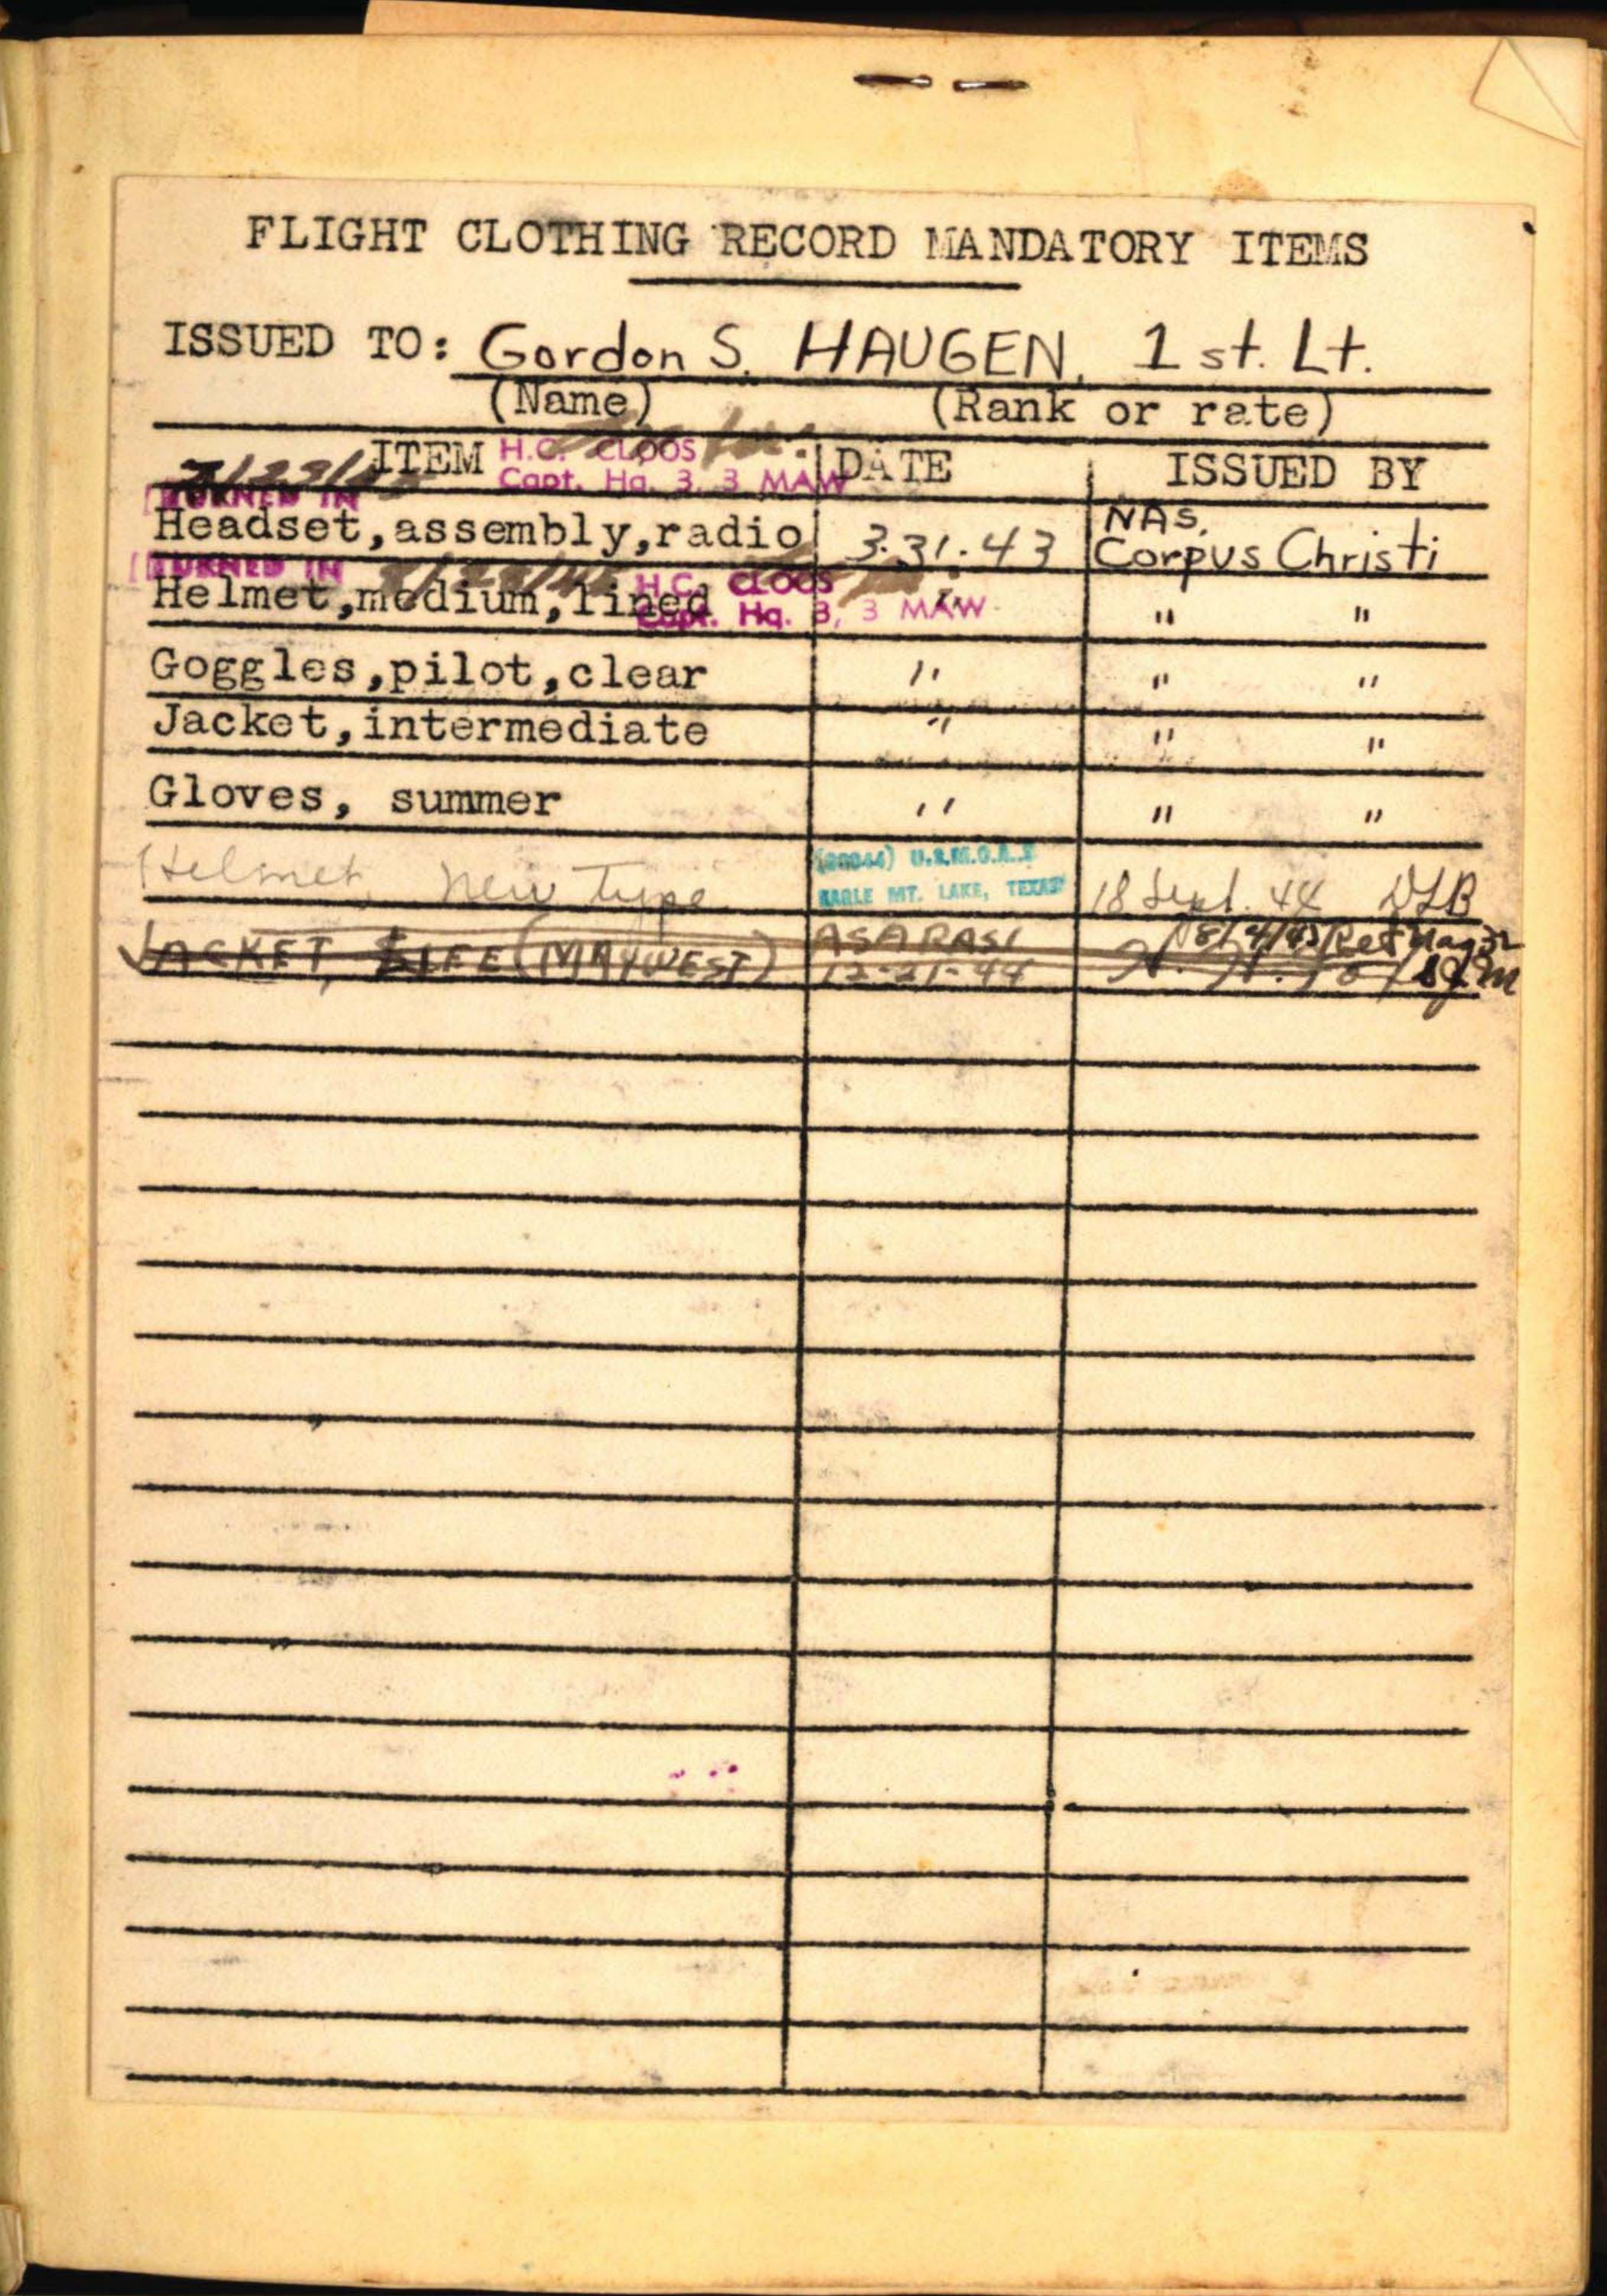 FLIGHT CLOTHING RECORD MANDATORY ITEMS
ISSUED TO: Gordon S. HAUGEN, 1st. Lt.
(Name) (Rank or rate)
ITEM H.C. CLOOS DATE ISSUED BY
Capt. Hq. 3, 3 MAW
TURNED IN
Headset,assembly,radio 3.31.43 NAS. Corpus Christi
TURNED IN H.C. CLOOS
Helmet,medium,lined " "
Capt. Hq. 3, 3 MAW
Goggles,pilot,clear " " "
Jacket,intermediate " " "
Gloves, summer " " "
Helmet, New Type U.S.M.C.A.S. 18 Sept. 44 DLB
EAGLE MT. LAKE, TEXAS
JACKET, LIFE (MAYWEST) 12-21-44